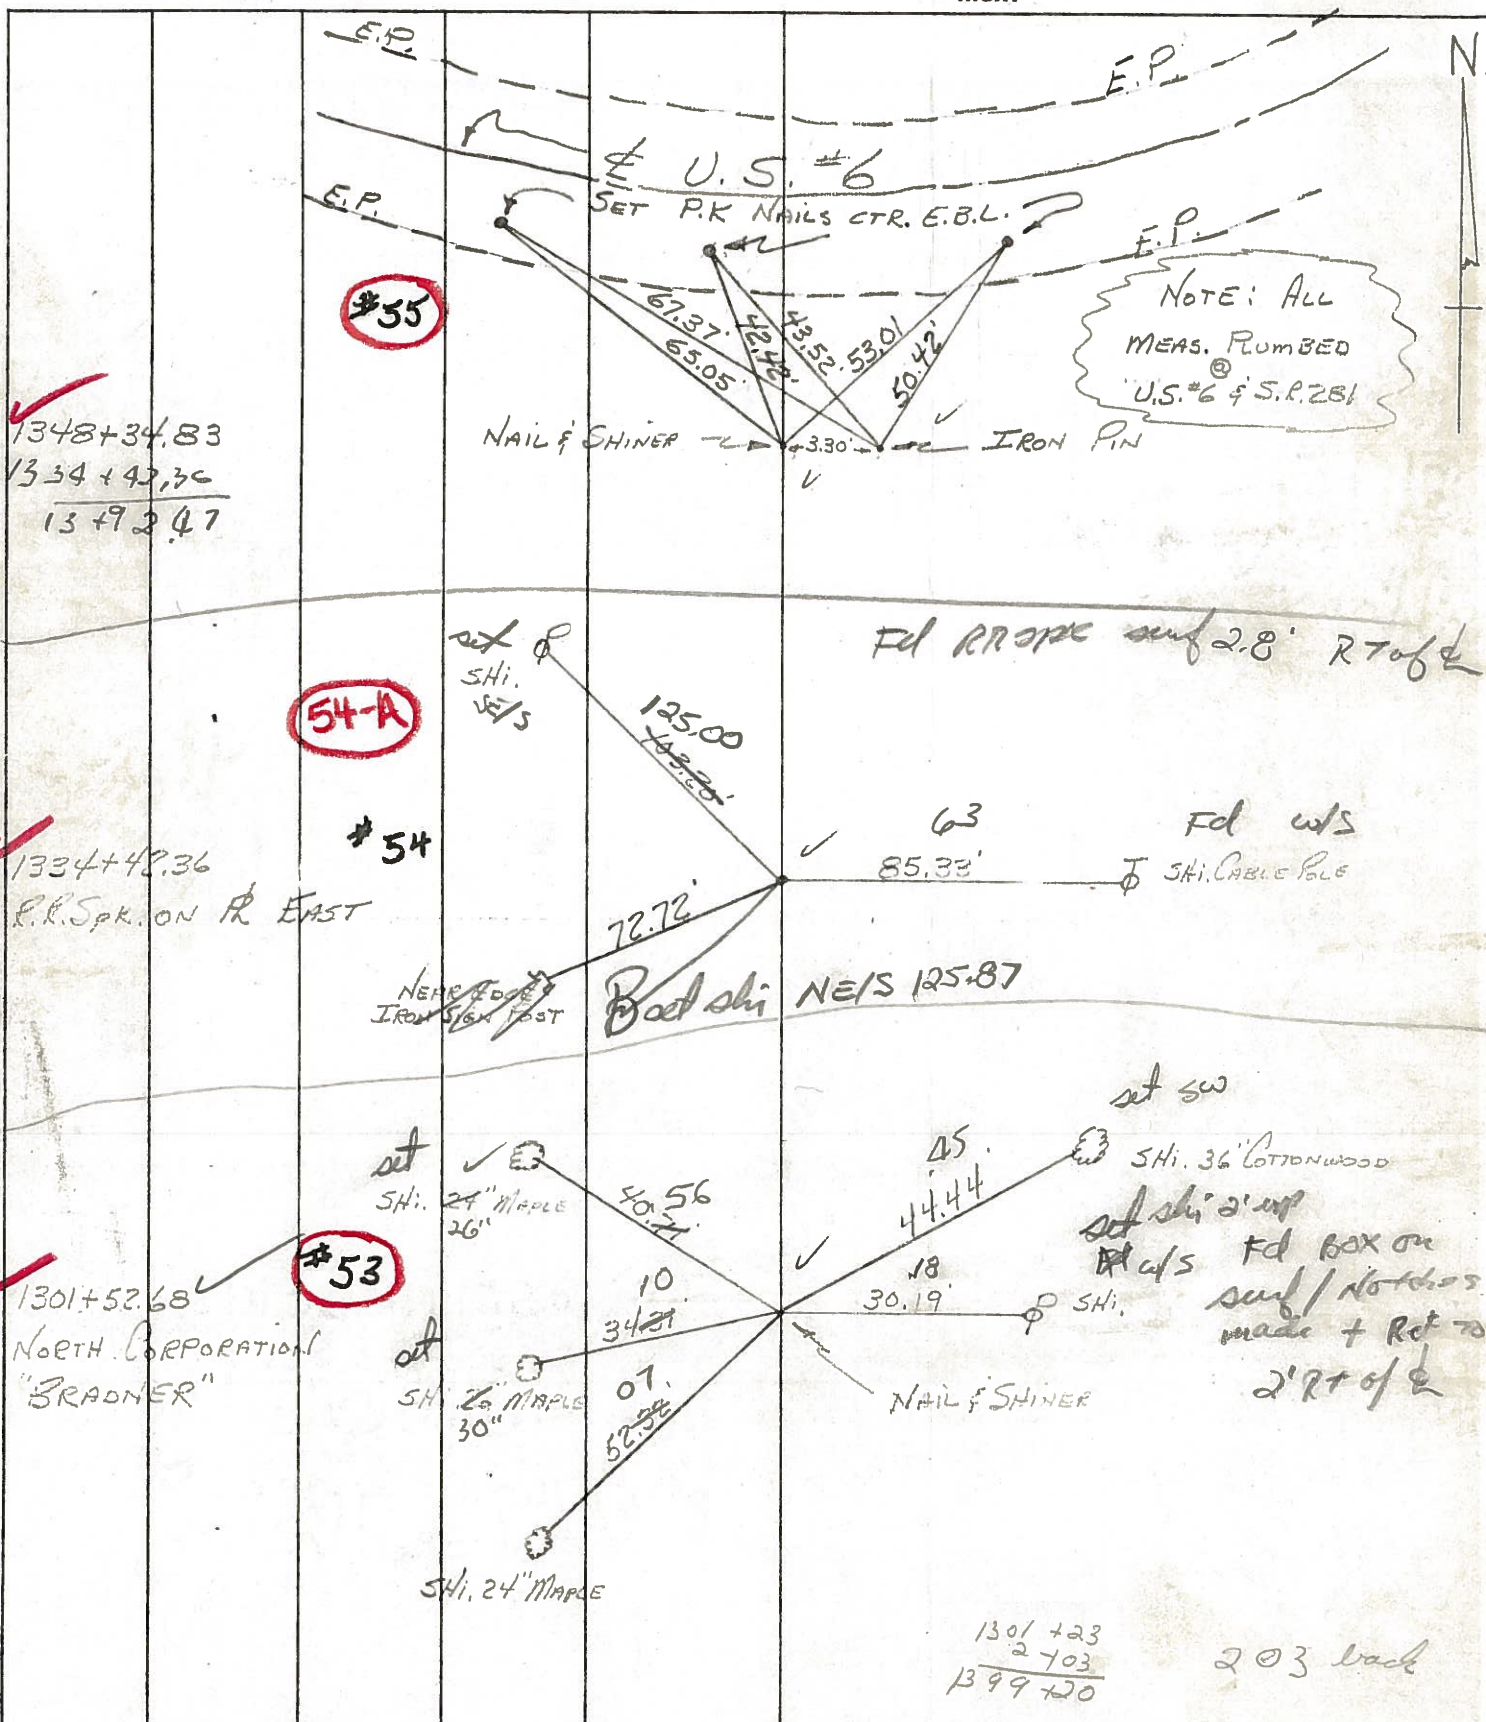 E.P.
E.P.
N.
℄ U.S. #6
E.P.
SET P.K NAILS CTR. E.B.L.
E.P.
#55
NOTE: ALL
MEAS. PLUMBED
@
U.S.#6 & S.R.281
67.37'
65.05'
42.42'
43.52'
53.01
50.42'
1348+34.83
1334+42.36
13+92.47
NAIL & SHINER
3.30'
IRON PIN
set
SHi.
SE/S
Fd RR spk surf 2.8' RT of ℄
54-A
125.00
103.28'
#54
63
85.33'
Fd W/S
SHi. CABLE POLE
1334+42.36
R.R.SPK. ON ℄ EAST
72.72'
NEAR EDGE
IRON SIGN POST
set shi NE/S 125.87
set SW
SHi. 36" COTTONWOOD
set
SHi. 24" MAPLE
26"
56
45.
44.44
set shi 2' up
W/S Fd BOX on
surf / No tkes
made + Ret to
2' Rt of ℄
#53
1301+52.68
NORTH CORPORATION
"BRADNER"
10
34.31
18
30.19'
SHi.
set
SHi. 26" MAPLE
30"
07.
52.32
NAIL & SHINER
SHi. 24" MAPLE
1301+23
2+03
1399+20
203 back